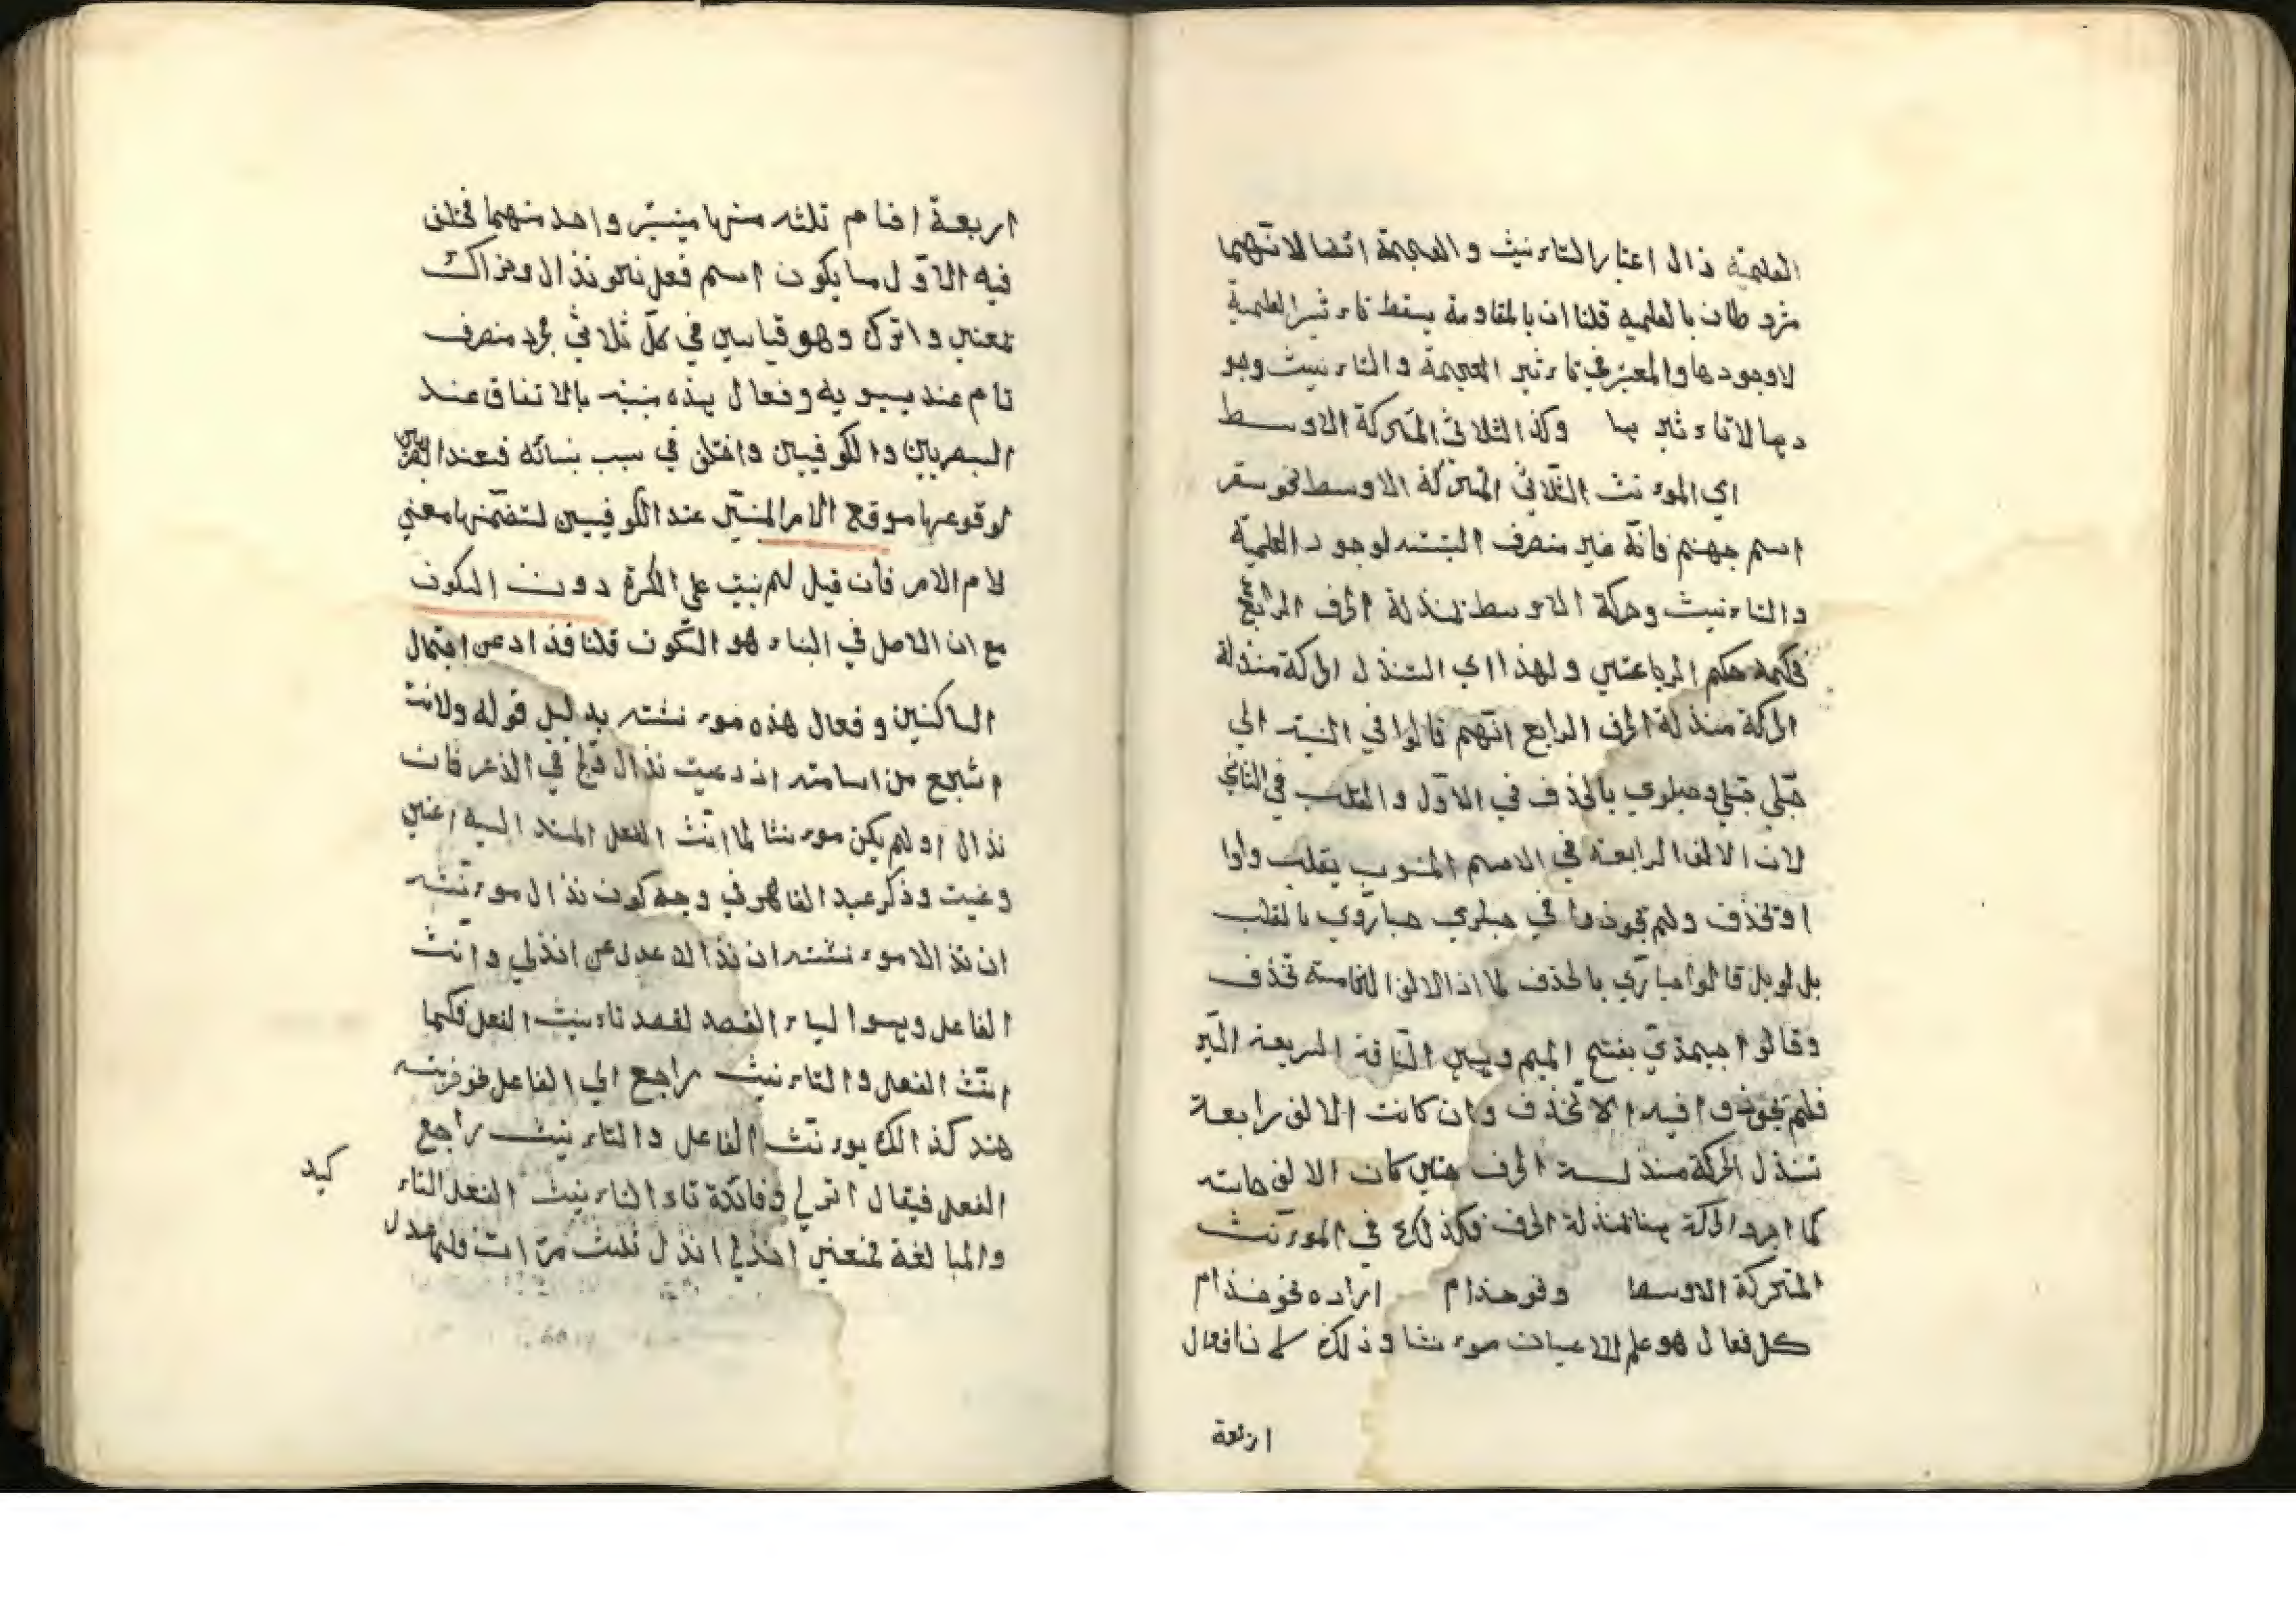 العلمية زال اعتبار التاءنيث والعجمة ايضا لانهما
مشروطان بالعلمية قلنا ان بالمقاومة يسقط تاءثير العلمية
لا وجودها والمعتبر في تاءثير العجمة والتاءنيث وجو
دها لا تاءثيرها وكذا الثلاثي المتحركة الاوسط
اي الموءنث الثلاثي المتحركة الاوسط نحو سقر
اسم جهنم فانه غير منصرف البتته لوجود العلمية
والتاءنيث وحركة الاوسط بمنذلة الحرف الرابع
فحكمه حكم الرباعي ولهذا اي التنذل الحركة منذلة
الحركة منذلة الحرف الرابع انهم قالوا في النسبة الي
حبلي حبلي وحبلوي بالحذف في الاول والقلب في الثاني
لان الالف الرابعة في الاسم المنسوب يقلب واوا
او تحذف ولم يجوزوا في حباري حباروي بالقلب
بل قالوا حباري بالحذف لما ان الالف الخامسة تحذف
وقالوا جمذي بفتح الميم وهي الناقة السريعة السير
فلم يجوزوا فيه الا تحذف وان كانت الالف رابعة
تنذل الحركة منذلة الحرف حتي كان الالف خامسه
كما اجرد الحركة هنا بمنذلة الحرف فكذلك في الموءنث
المتحركة الاوسط ونحو حذام اراده نحو حذام
كل فعال هو علم الاعيان موءنثا وذلك لان فعال
اربعة
اربعة اقسام ثلثه منها مبنية واحد منهما مختلف
فيه الاول ما يكون اسم فعل نحو نذال وتراك
بمعني واترك وهو قياسي في كل ثلاثي مجرد منصرف
تام عند سيبويه وفعال هذه مبنيه بالاتفاق عند
البصريين والكوفيين واختلف في سبب بنائه فعند البصريين
لوقوعها موقع الامر المبني عند الكوفيين لتضمنها معني
لام الامر فان قيل لم بني علي الكسرة دون السكون
مع ان الاصل في البناء هو السكون قلنا فذادعن اجتماع
الساكنين وفعال هذه موءنثته بدليل قوله ولانت
اشجع من اسامته اذ دعيت نذال ولج في الذعر فان
نذال او لم يكن موءنثا لما انث الفعل المسند اليه اعني
دعيت وذكر عبد القاهر في وجه كون نذال موءنثه
ان نذال موءنثته ان نذال عدل عن انذلي وانث
الفاعل وهو الياء القصد لقصد تاءنيث الفعل فكما
انث الفعل والتاءنيث راجع الي الفاعل نحو ضربته
هند كذالك يوءنث الفاعل والتاءنيث راجع
الفعل فيقال انزلي وفائدة تاء التاءنيث الفعل التاء
كيد
والمبالغة بمعني انذلي انذل ثلث مرات فلما عدل